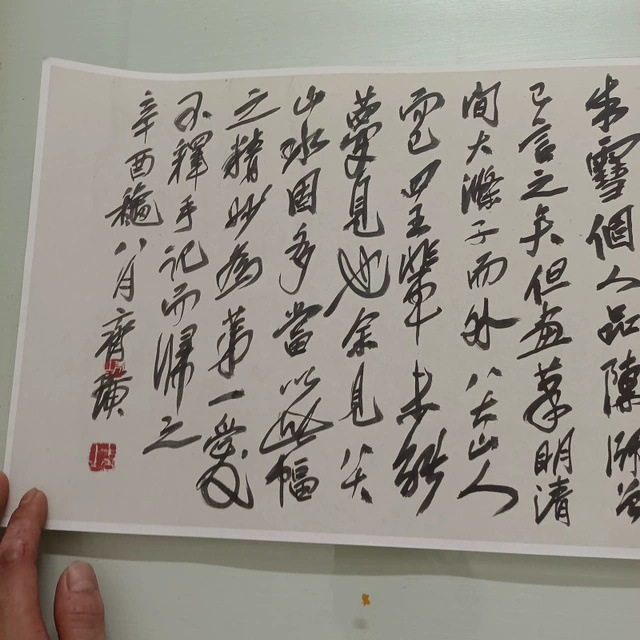 朱雪個人品陳師曾
已言之矣但畫筆明清
間大滌子而外八大山人
而已四王輩未能
夢見也余見八大
山水固多當以此幅
之精妙為第一愛
不釋手記而歸之
辛酉龝八月齊璜